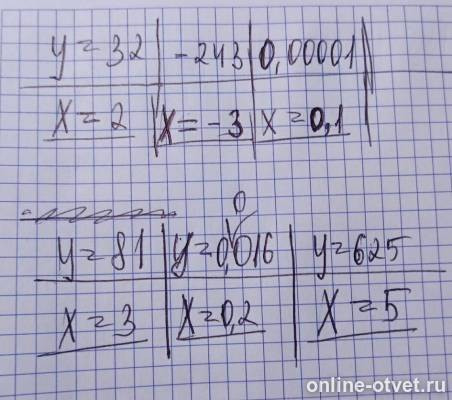 y = 32 | -243 | 0,00001
x = 2 | x = -3 | x = 0,1
0
y = 81 | y = 0,016 | y = 625
x = 3 | x = 0,2 | x = 5
online-otvet.ru